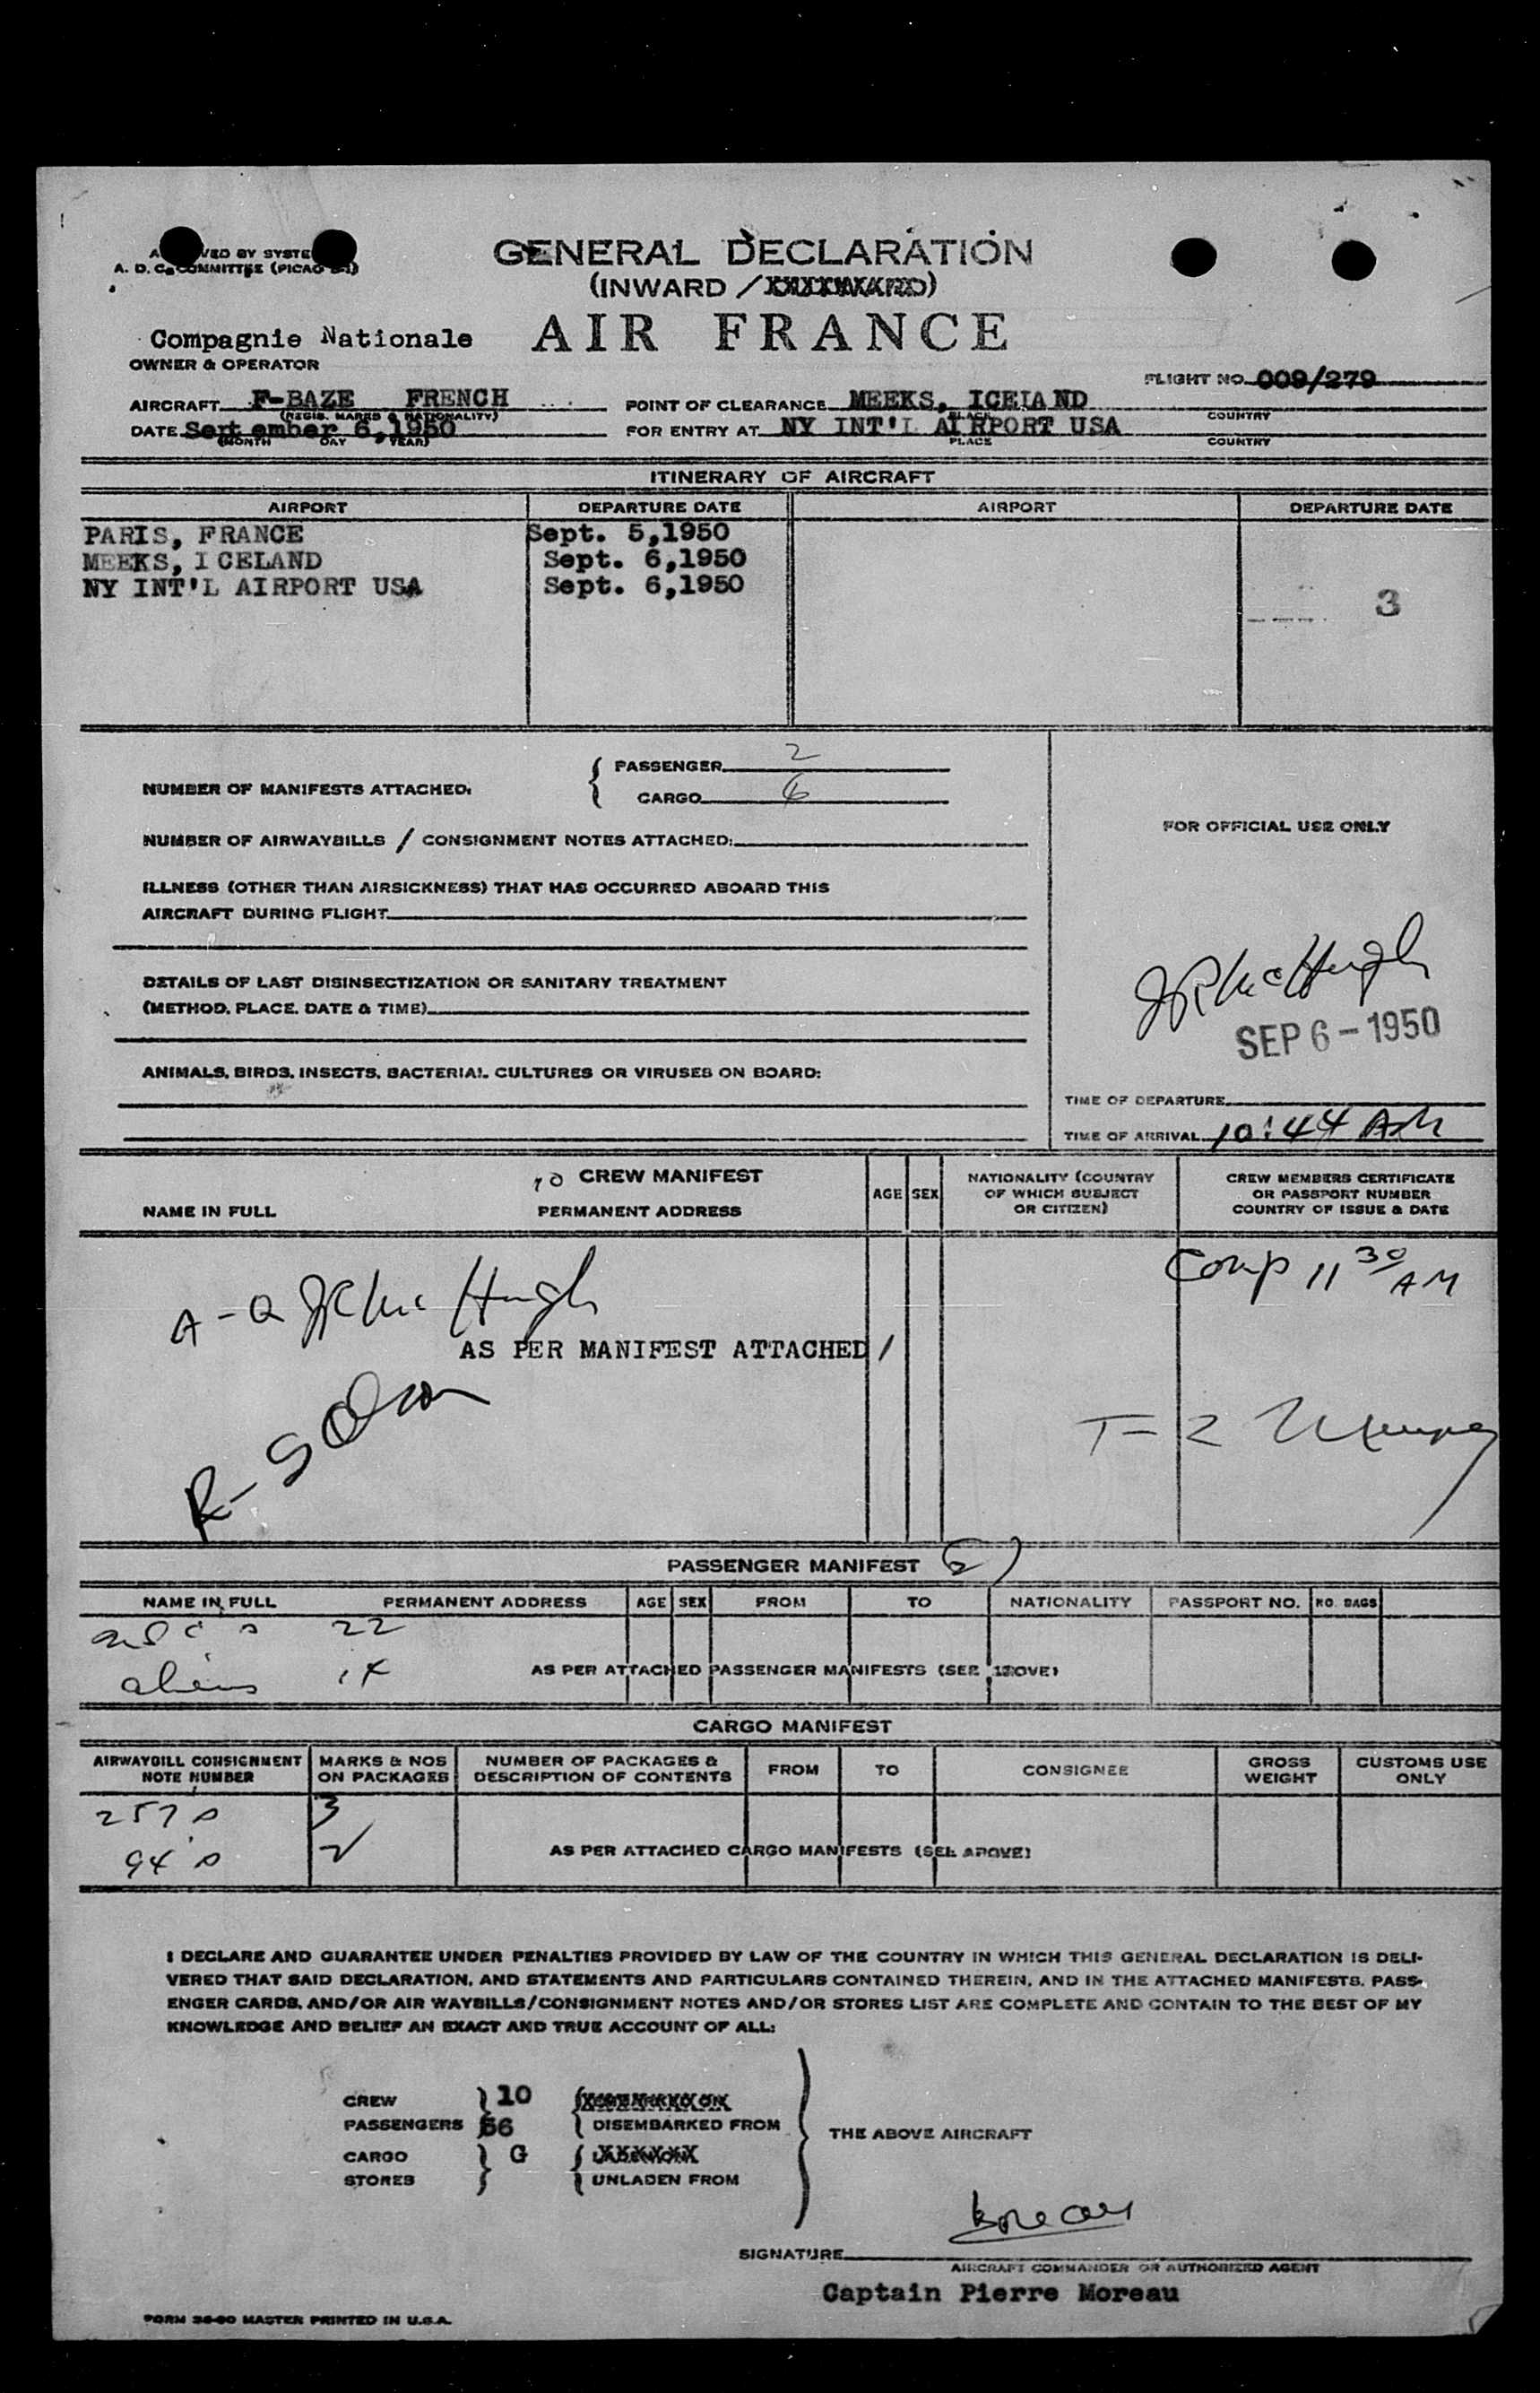 GENERAL DECLARATION
A. D. C. COMMITTEE (PICAO
(INWARD /
Compagnie Nationale AIR FRANCE
OWNER & OPERATOR
FLIGHT NO. 009/279
AIRCRAFT F-BAZE FRENCH POINT OF CLEARANCE MEEKS, ICELAND
(REGIS. MARKS & NATIONALITY) PLACE COUNTRY
DATE September 6,1950 FOR ENTRY AT NY INT'L AIRPORT USA
(MONTH DAY YEAR) PLACE COUNTRY
ITINERARY OF AIRCRAFT
AIRPORT DEPARTURE DATE AIRPORT DEPARTURE DATE
PARIS, FRANCE Sept. 5,1950
MEEKS, I CELAND Sept. 6,1950
NY INT'L AIRPORT USA Sept. 6,1950
3
PASSENGER 2
NUMBER OF MANIFESTS ATTACHED:
CARGO 6
FOR OFFICIAL USE ONLY
NUMBER OF AIRWAYBILLS / CONSIGNMENT NOTES ATTACHED:
ILLNESS (OTHER THAN AIRSICKNESS) THAT HAS OCCURRED ABOARD THIS
AIRCRAFT DURING FLIGHT
DETAILS OF LAST DISINSECTIZATION OR SANITARY TREATMENT
(METHOD, PLACE, DATE & TIME)
McHugh
SEP 6 - 1950
ANIMALS, BIRDS, INSECTS, BACTERIAL CULTURES OR VIRUSES ON BOARD:
TIME OF DEPARTURE
TIME OF ARRIVAL 10:44 AM
10 CREW MANIFEST
NAME IN FULL PERMANENT ADDRESS AGE SEX NATIONALITY (COUNTRY OF WHICH SUBJECT OR CITIZEN) CREW MEMBERS CERTIFICATE OR PASSPORT NUMBER COUNTRY OF ISSUE & DATE
Comp 11 30 AM
A-Q McHugh
AS PER MANIFEST ATTACHED /
T-2
PASSENGER MANIFEST (2)
NAME IN FULL PERMANENT ADDRESS AGE SEX FROM TO NATIONALITY PASSPORT NO. NO. BAGS
22
aliens 14
AS PER ATTACHED PASSENGER MANIFESTS (SEE ABOVE)
CARGO MANIFEST
AIRWAYBILL CONSIGNMENT NOTE NUMBER MARKS & NOS ON PACKAGES NUMBER OF PACKAGES & DESCRIPTION OF CONTENTS FROM TO CONSIGNEE GROSS WEIGHT CUSTOMS USE ONLY
257 3
94 2
AS PER ATTACHED CARGO MANIFESTS (SEE ABOVE)
I DECLARE AND GUARANTEE UNDER PENALTIES PROVIDED BY LAW OF THE COUNTRY IN WHICH THIS GENERAL DECLARATION IS DELI-
VERED THAT SAID DECLARATION, AND STATEMENTS AND PARTICULARS CONTAINED THEREIN, AND IN THE ATTACHED MANIFESTS, PASS-
ENGER CARDS, AND/OR AIR WAYBILLS/CONSIGNMENT NOTES AND/OR STORES LIST ARE COMPLETE AND CONTAIN TO THE BEST OF MY
KNOWLEDGE AND BELIEF AN EXACT AND TRUE ACCOUNT OF ALL:
CREW 10
PASSENGERS 56 DISEMBARKED FROM
THE ABOVE AIRCRAFT
CARGO G
STORES UNLADEN FROM
Moreau
SIGNATURE
AIRCRAFT COMMANDER OR AUTHORIZED AGENT
Captain Pierre Moreau
FORM 36-60 MASTER PRINTED IN U.S.A.